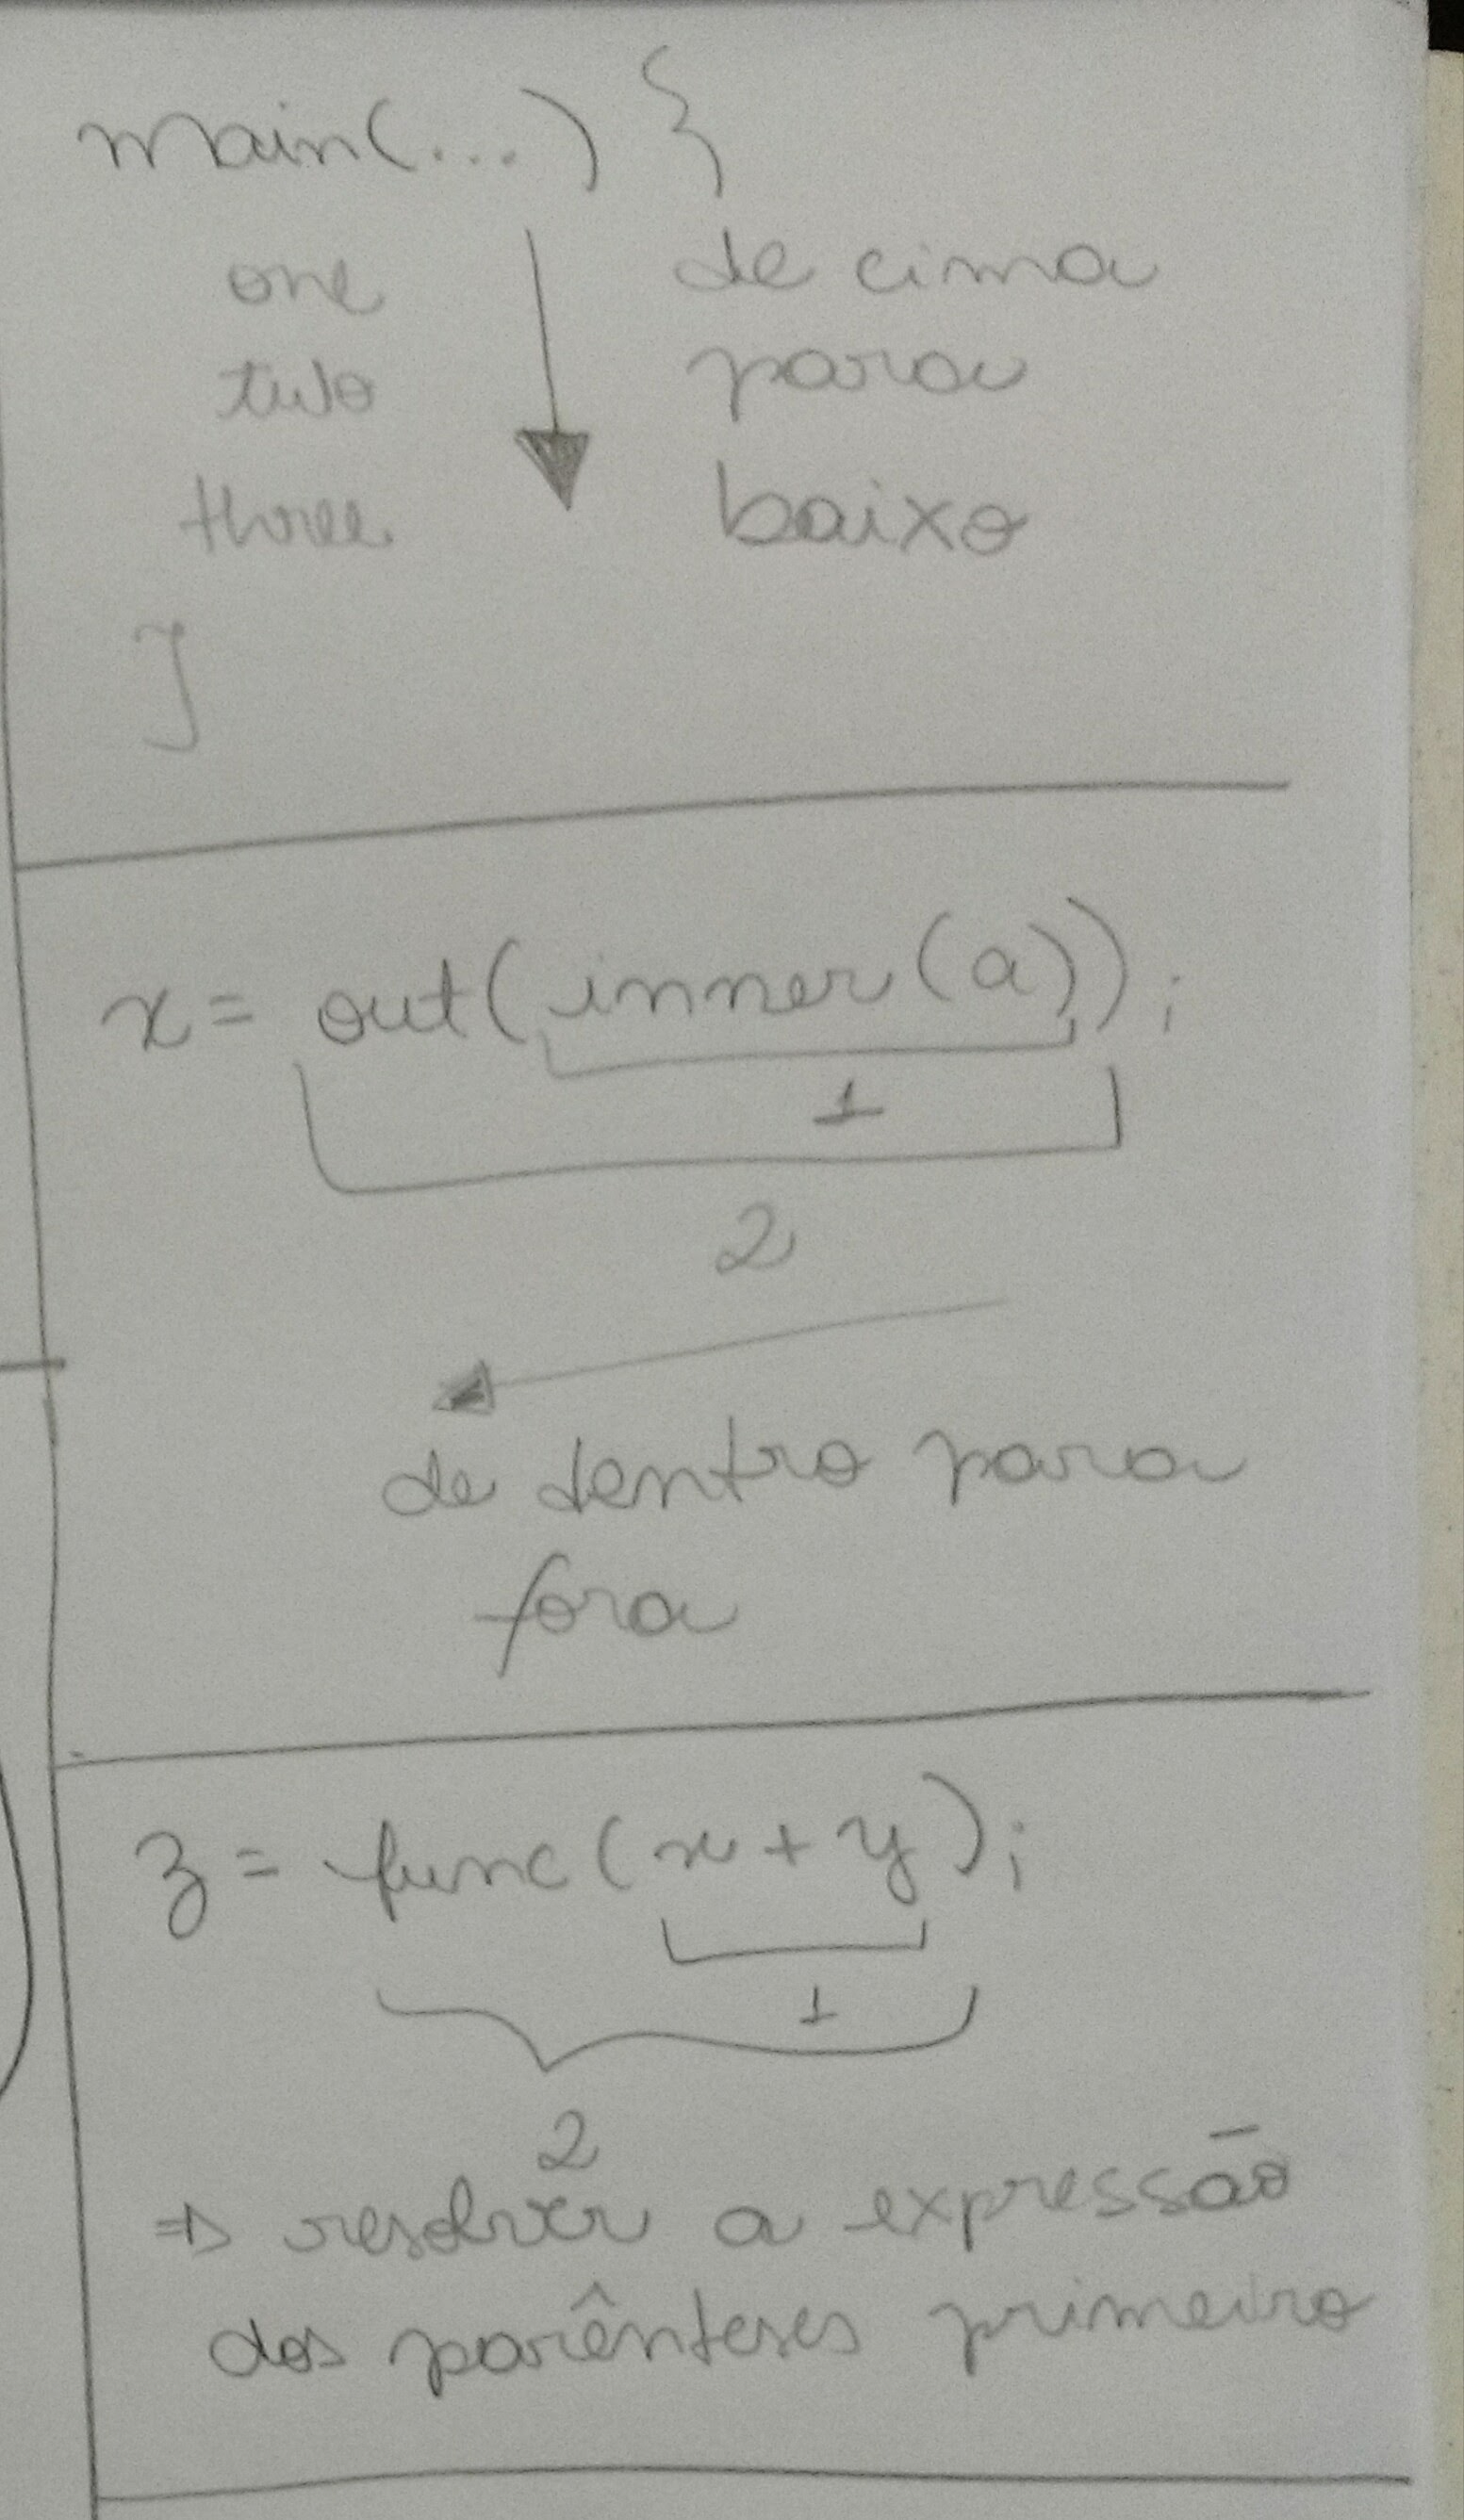 main(...) {
one
two
three
de cima
para
baixo
}
x = out(inner(a));
1
2
de dentro para
fora
z = func(x + y);
1
2
⇒ resolver a expressão
dos parênteses primeiro